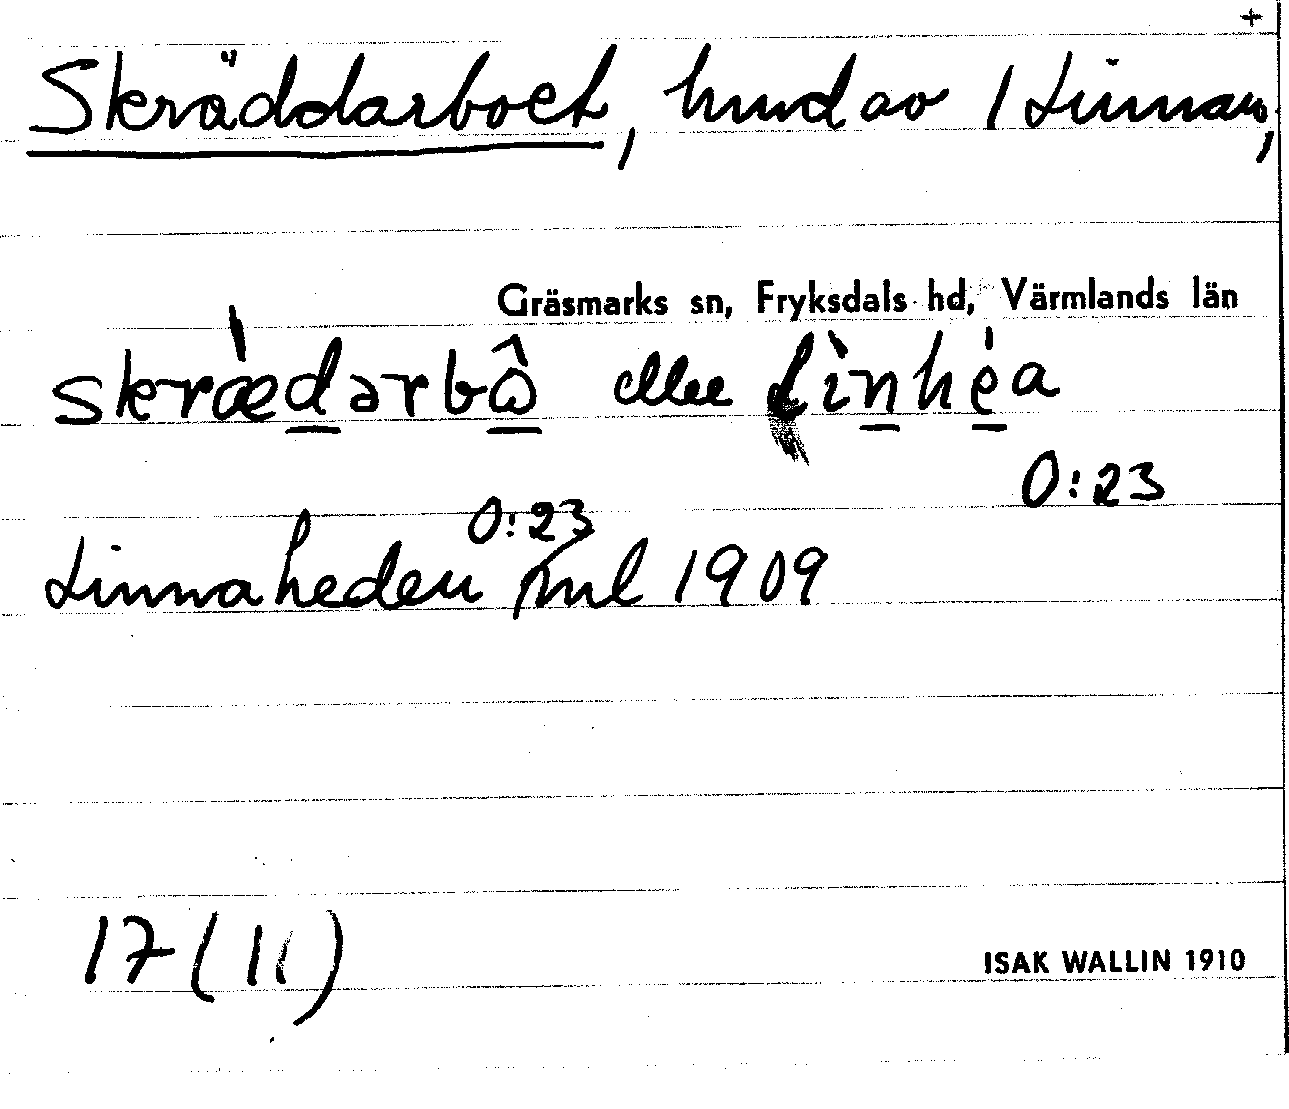 +
Skräddarboet, hmd av 1 Linnan,
Gräsmarks sn, Fryksdals hd, Värmlands län
skrædərbɷ̂ eller Lìnhéa
0:23
0:23
Linnaheden jml 1909
17 (11)
ISAK WALLIN 1910